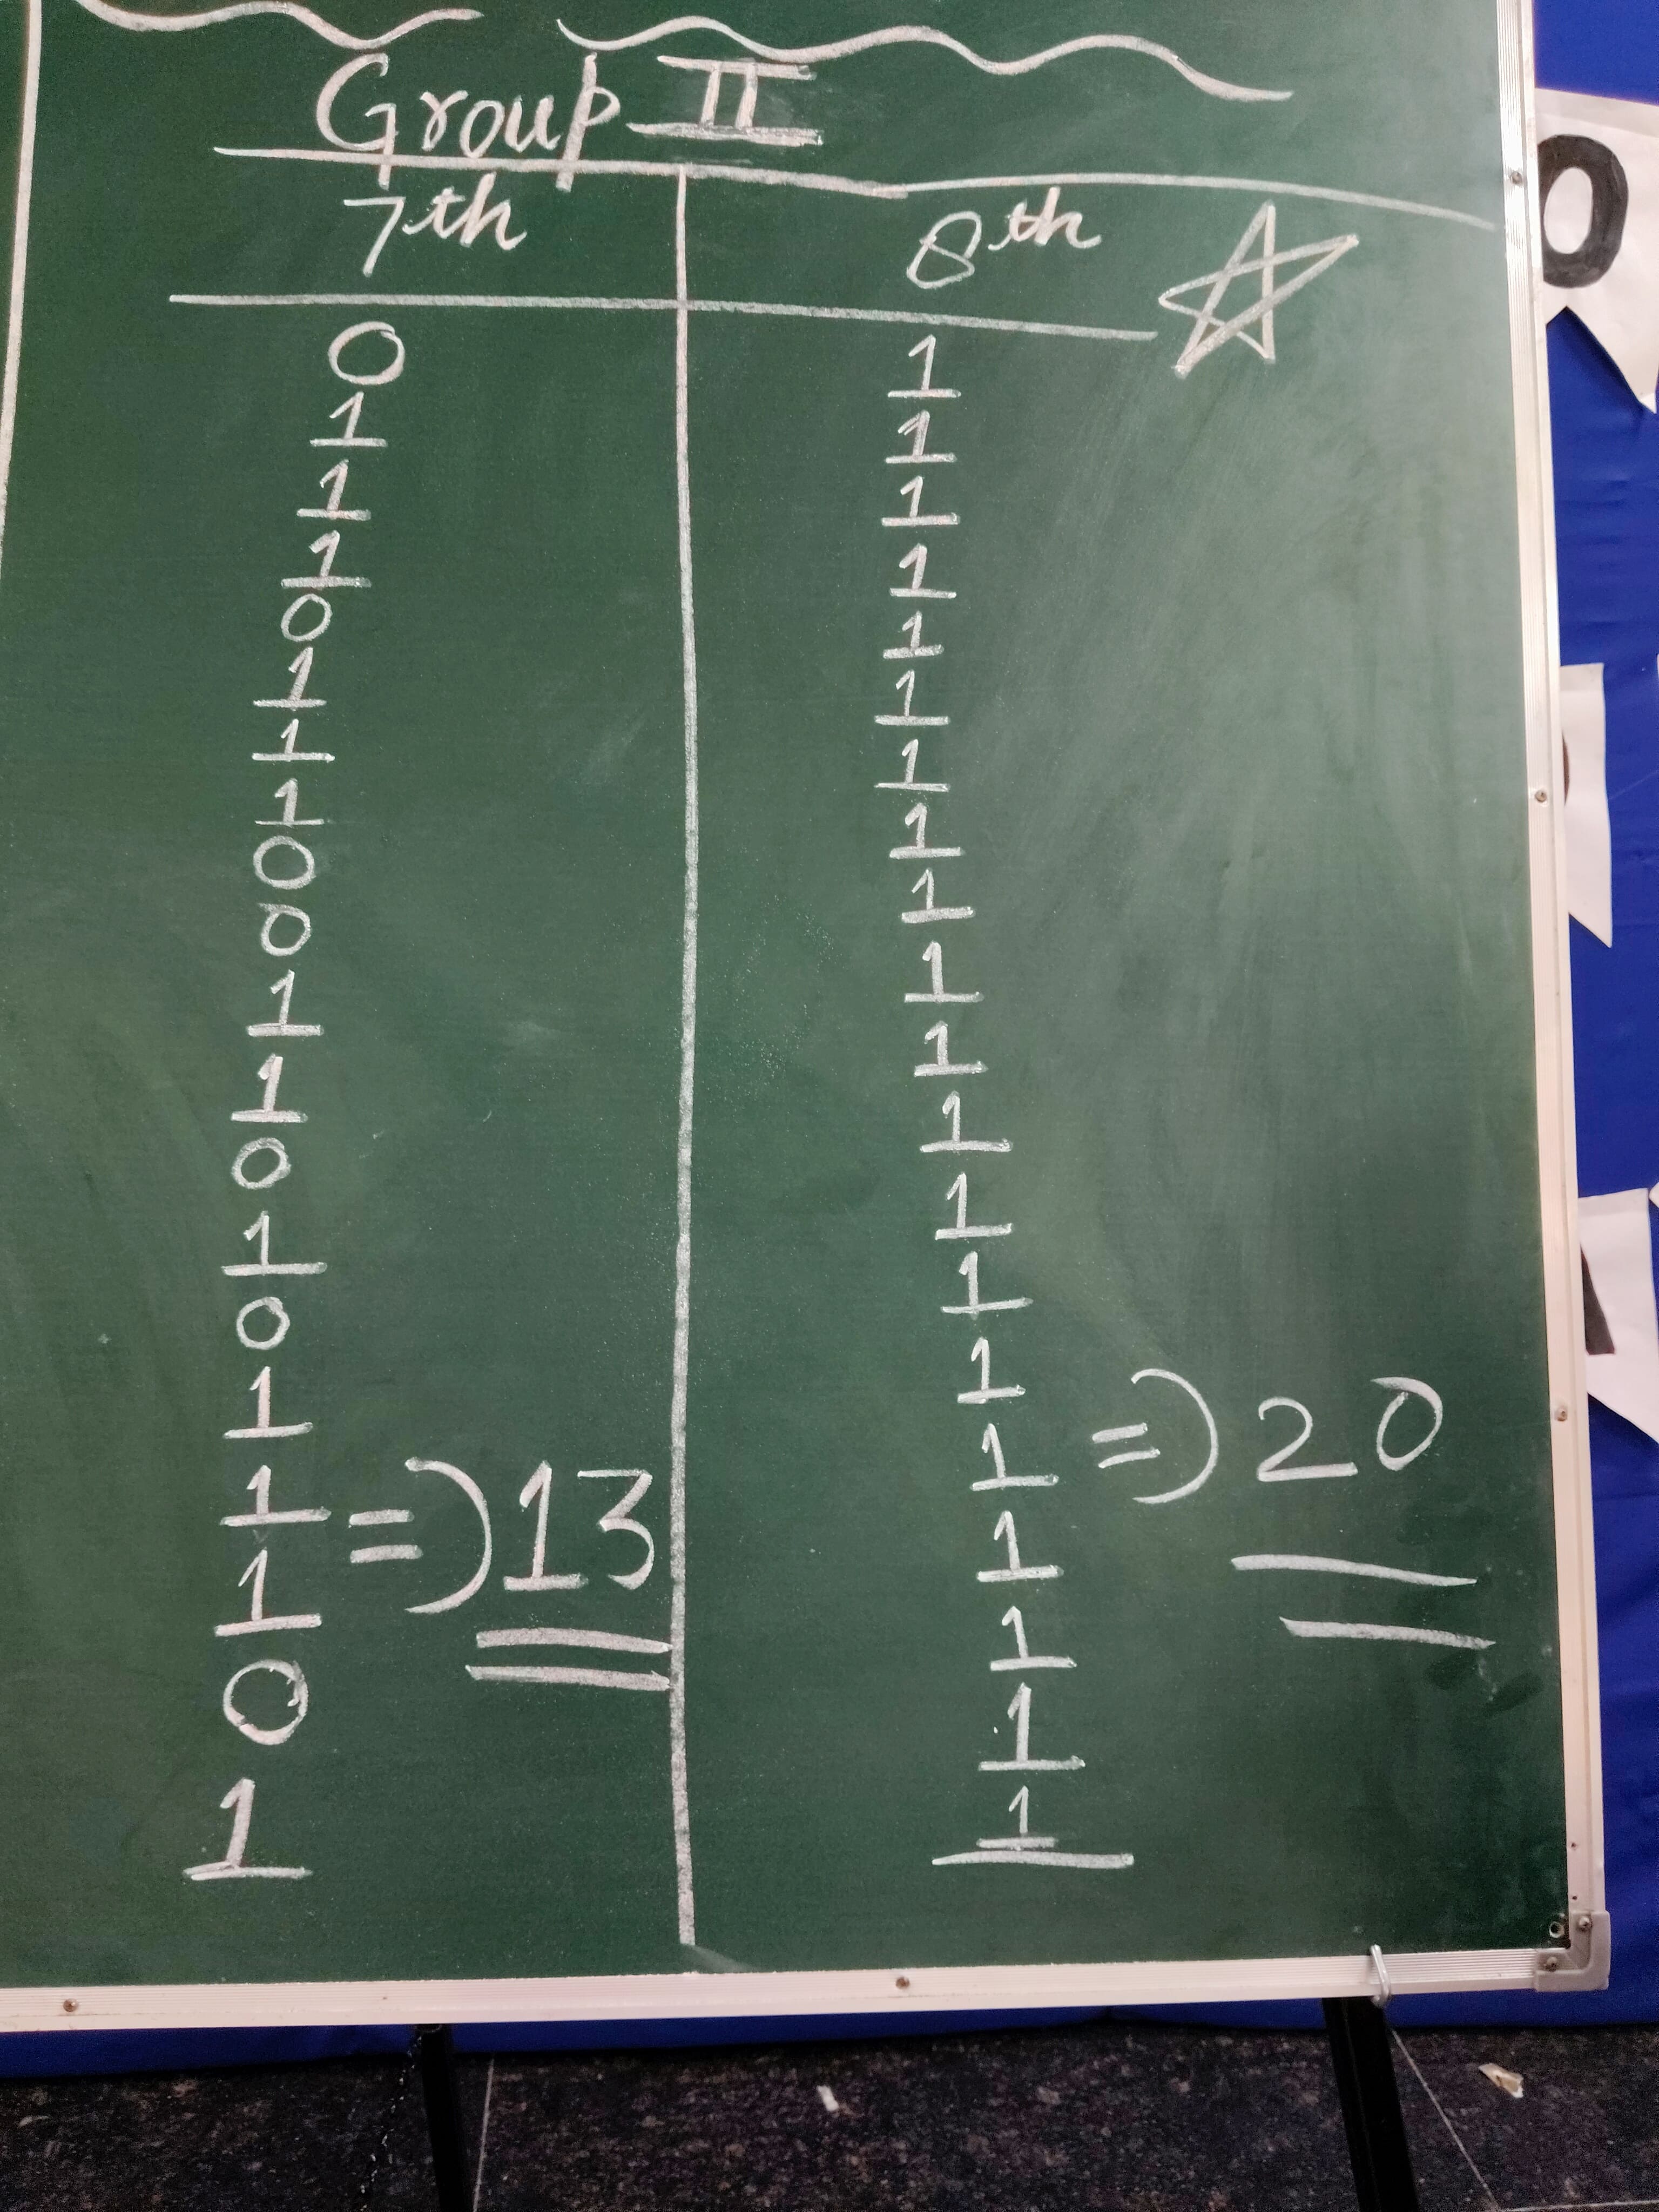 Group II
7th 8th
0 1
1 1
1 1
1 1
0 1
1 1
1 1
1 1
0 1
0 1
1 1
1 1
0 1
1 1
0 1
1 1 =) 20
1 =) 13 1
1 1
0 1
1 1